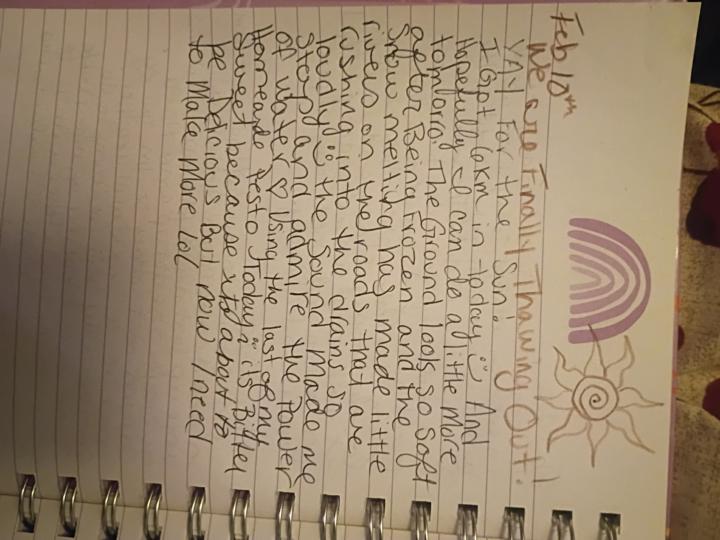 Feb 10th
We are Finally Thawing Out!
YAY For the Sun!
I Got 6km in today :) And
Hopefully I can do a little more
tomboro! The Ground looks so soft
after Being Frozen and the
snow melting has made little
rivers on the roads that are
rushing into the drains so
loudly :) the sound made me
stop and admire the Power
of water ♡ Using the last of my
Homeade Pesto Today :) is Bitter
Sweet because its about to
be Delicious But now I need
to Make More lol